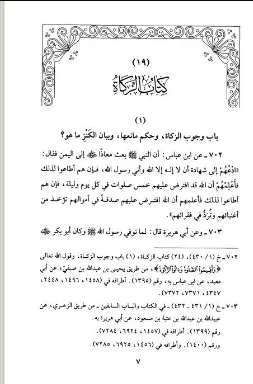 (١٩)
كتاب الزكاة
(١)
باب وجوب الزكاة، وحكم مانعها، وبيان الكنز ما هو؟
٧٠٢ ـ عن ابن عباس: أن النبي ﷺ بعث معاذًا ﷺ إلى اليمن فقال:
«ادعُهُمْ إلى شهادة أن لا إله إلا الله وأني رسول الله، فإن هم أطاعوا لذلك
فأعْلِمْهُم أن الله قد افترض عليهم خمس صلوات في كل يوم وليلة، فإن هم
أطاعوا لذلك فأعلمهم أن الله افترض عليهم صدقةً في أموالهم تؤخذ من
أغنيائهم وتُردُّ في فقرائهم».
٧٠٣ ـ وعن أبي هريرة قال: لما توفي رسول الله ﷺ وكان أبو بكر
٧٠٢ ـ خ (١/ ٤٣٠)، (٢٤) كتاب الزكاة، (١) باب وجوب الزكاة، وقول الله تعالى
﴿وَأَقِيمُوا الصَّلَاةَ وَآتُوا الزَّكَاةَ﴾، من طريق يحيى بن عبدالله بن صيفي، عن أبي
معبد، عن ابن عباس به، رقم (١٣٩٥)، أطرافه في (١٤٥٨، ١٤٩٦، ٢٤٤٨،
٤٣٤٧، ٧٣٧١، ٧٣٧٢).
٧٠٣ ـ خ (١/ ٤٣١ ـ ٤٣٢)، في الكتاب والباب السابقين ـ من طريق الزهري، عن
عبيدالله بن عبدالله بن عتبة بن مسعود، عن أبي هريرة به
رقم (١٣٩٩)، أطرافه في (١٤٥٧، ٦٩٢٤، ٧٢٨٤).
ورقم (١٤٠٠)، وأطرافه في (١٤٥٦، ٦٩٢٥، ٧٢٨٥).
٧